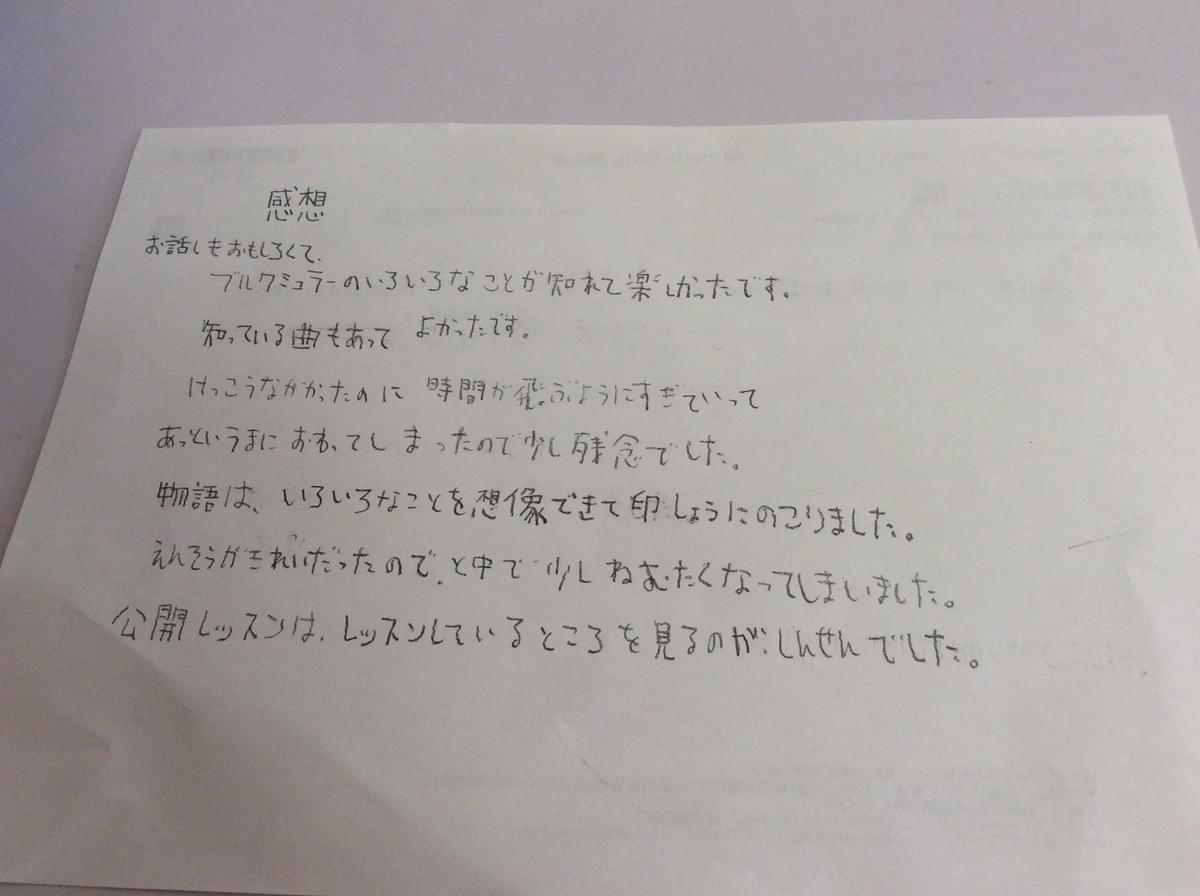 感想
お話しもおもしろくて、
ブルクミュラーのいろいろなことが知れて楽しかったです。
知っている曲もあって よかったです。
けっこうなかがったのに 時間が飛ぶようにすぎていって
あっというまに おわってしまったので少し残念でした。
物語は、いろいろなことを想像できて印しょうにのこりました。
えんそうがきれいだったので、と中で少しねむたくなってしまいました。
公開レッスンは、レッスンしているところを見るのが、しんせんでした。